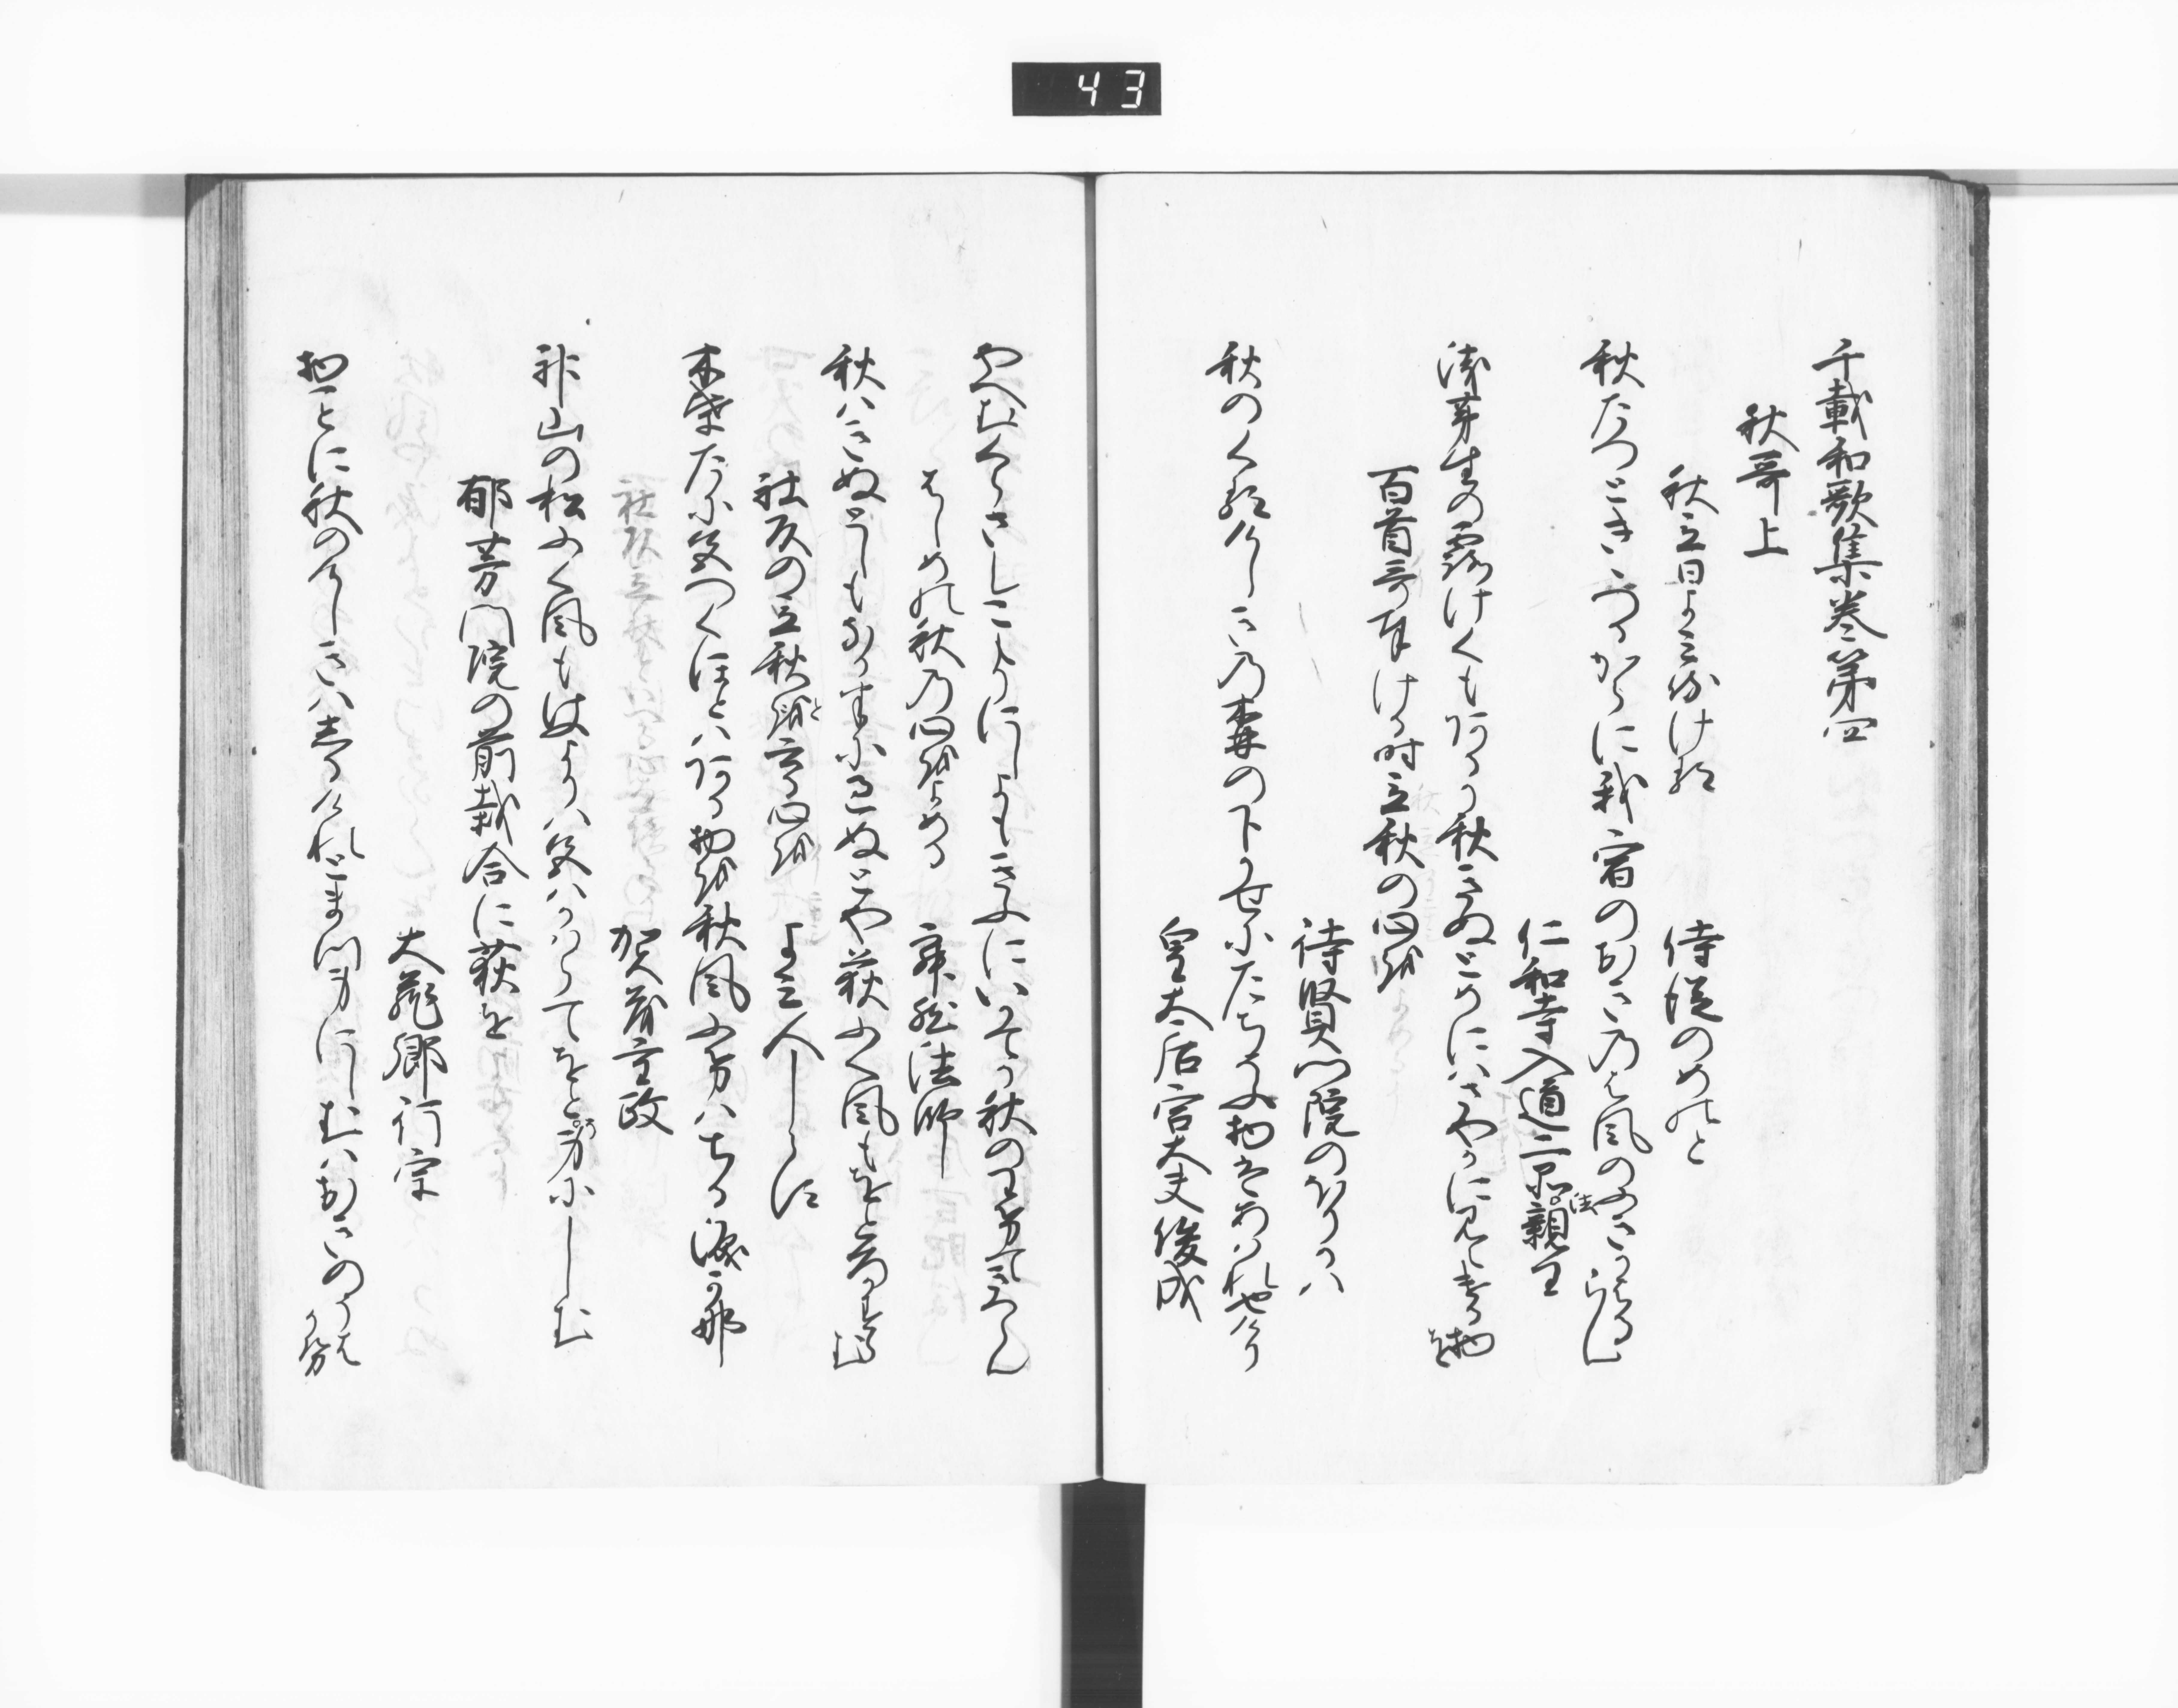 43
千載和歌集巻第四
秋哥上
秋立日よみ侍ける　侍従のめのと
秋たつときゝつるからに我宿のおきの葉風のふきかはるらん
仁和寺入道二品法親王
浅芽生の露けくもあるか秋きぬとめにはさやかに見えける物を
百首哥奉ける時立秋の心を
待賢門院のほりかは
秋のくるけしきの森の下かせにたちそふ物はあはれ也けり
皇太后宮大夫俊成
やへむくらさしこもりにしよもきふにいかてか秋のわけてきつらん
はしめの秋の心をよめる　寂然法師
秋はきぬとしもなかはに過ぬとや荻ふく風もをとろかすらむ
社頭の立秋と云る心を　よみ人しらす
木葉たに色つくほとはある物を秋風ふけはちる涙かな
賀茂重政
神山の松ふく風もけふよりは色はかはらてをとそ身にしむ
郁芳門院の前栽合に荻を
大蔵卿行宗
物ことに秋のけしきはしるけれとまつ身にしむはおきのうはかせ